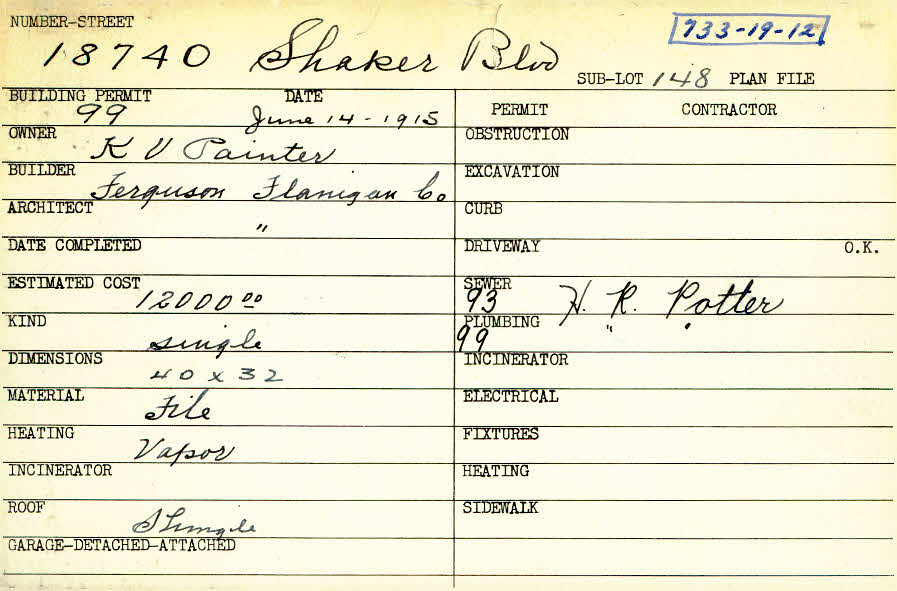 NUMBER-STREET
733-19-12
18740 Shaker Blvd
SUB-LOT 148 PLAN FILE
BUILDING PERMIT DATE
99 June 14-1915
OWNER
K V Painter
BUILDER
Ferguson Flanigan Co
ARCHITECT
"
DATE COMPLETED
ESTIMATED COST
12000 00
KIND
single
DIMENSIONS
40 x 32
MATERIAL
Tile
HEATING
Vapor
INCINERATOR
ROOF
Shingle
GARAGE-DETACHED-ATTACHED
PERMIT CONTRACTOR
OBSTRUCTION
EXCAVATION
CURB
DRIVEWAY O.K.
SEWER
93 H. R. Potter
PLUMBING " "
99
INCINERATOR
ELECTRICAL
FIXTURES
HEATING
SIDEWALK